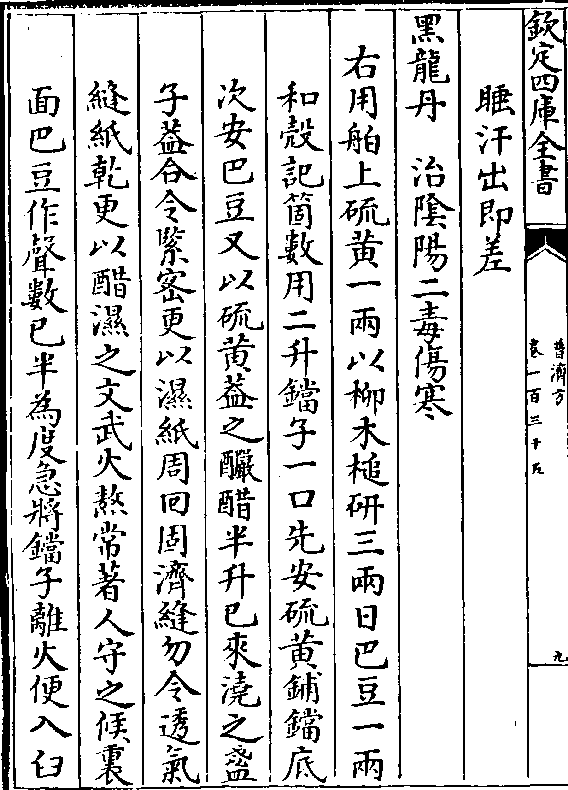 欽定四庫全書
普濟方
卷一百三十九
九
睡汗出即差
黑龍丹　治陰陽二毒傷寒
右用舶上硫黃一兩以柳木槌研三兩日巴豆一兩
和殼記箇數用二升鐺子一口先安硫黃鋪鐺底
次安巴豆又以硫黃葢之釅醋半升已來澆之盞
子葢合令緊密更以濕紙周回固濟縫勿令透氣
縫紙乾更以醋濕之文武火熬常著人守之候裏
面巴豆作聲數已半為度急將鐺子離火便入臼